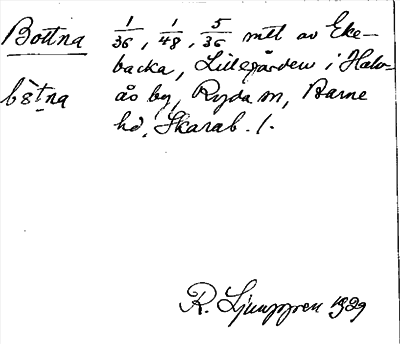 Bottna 1/36, 1/48, 5/36 mtl av Eke-
backa, Lillegården i Halv-
bòtna ås by, Ryda sn, Barne
hd, Skarab. l.
R. Ljunggren 1929